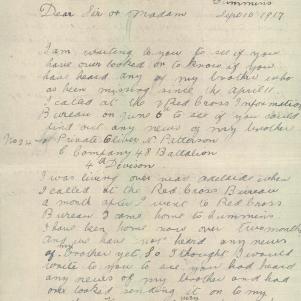 Cummins
Dear Sir or Madam Sept 10 1917
I am writing to you to see if you
have over looked on to know if you
have heard any of my brother who
as been missing since the April 11.
I called at the Red Cross Information
Bureau on June 6 to see if you could
find out any news of my brother
No 24 Private Oliver N Patterson
C Company 48 Battalion
4th Division
I was living over near Adelaide when
I called at the Red Cross Bureau
a month after I went to Red Cross
Bureau I came home to Cummins
I have been home now over two months
and we have not heard any news
of my brother yet. So I thought I would
write to you to see if you had heard
any news of my brother and had
over looked sending it on to my
very